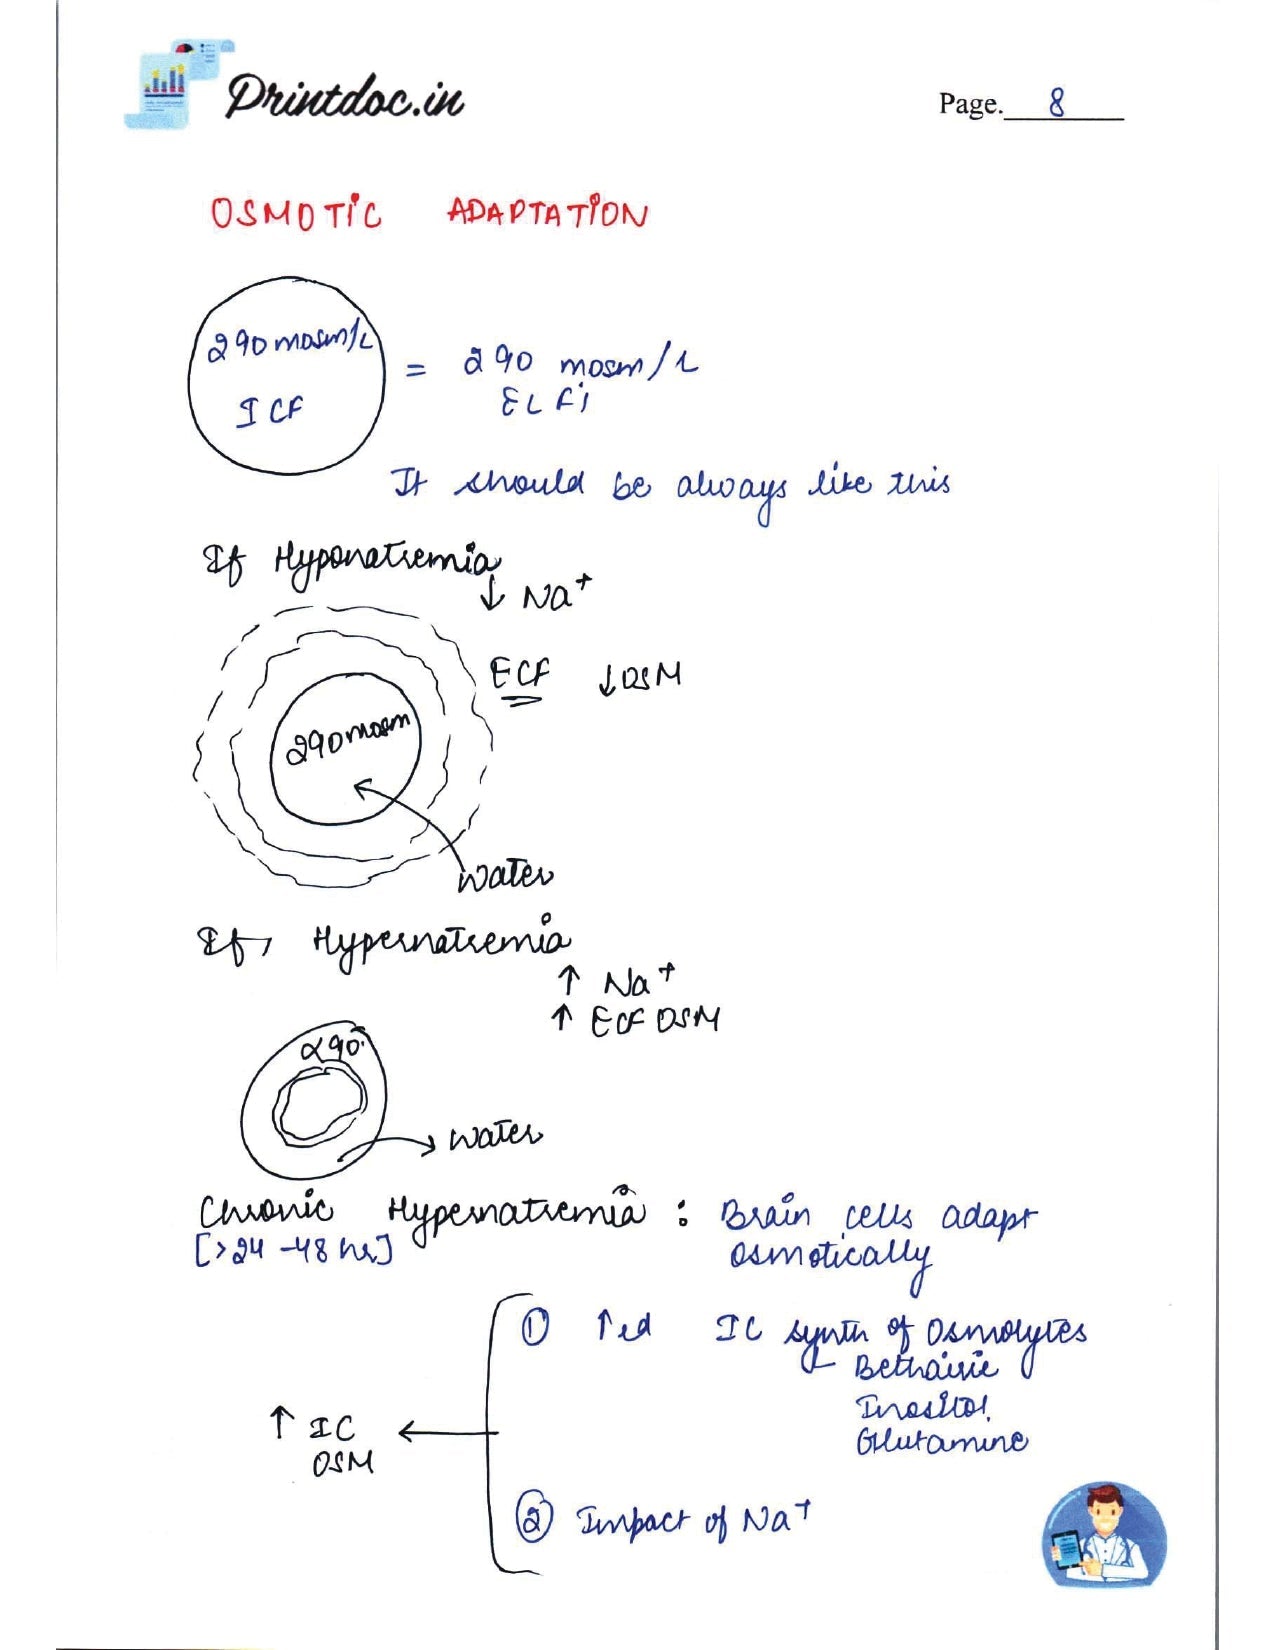 Printdoc.in
Page. 8
OSMOTIC ADAPTATION
290 mosm/L
ICF
= 290 mosm/L
ELFi
It should be always like this
If Hyponatremia
↓ Na+
ECF ↓OSM
290 mosm
Water
If, Hypernatremia
↑ Na+
↑ ECF OSM
290
Water
Chronic Hypernatremia : Brain cells adapt
[>24-48 hr] osmotically
① ↑ed IC synth of Osmolytes
Bethainie
Inositol
Glutamine
↑ IC
OSM
② Impact of Na+